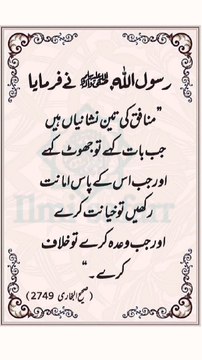 رسول اللہ ﷺ نے فرمایا
”منافق کی تین نشانیاں ہیں
جب بات کہے تو جھوٹ کہے
اور جب اس کے پاس امانت
رکھیں تو خیانت کرے
اور جب وعدہ کرے تو خلاف
کرے۔“
(صحیح البخاری 2749)